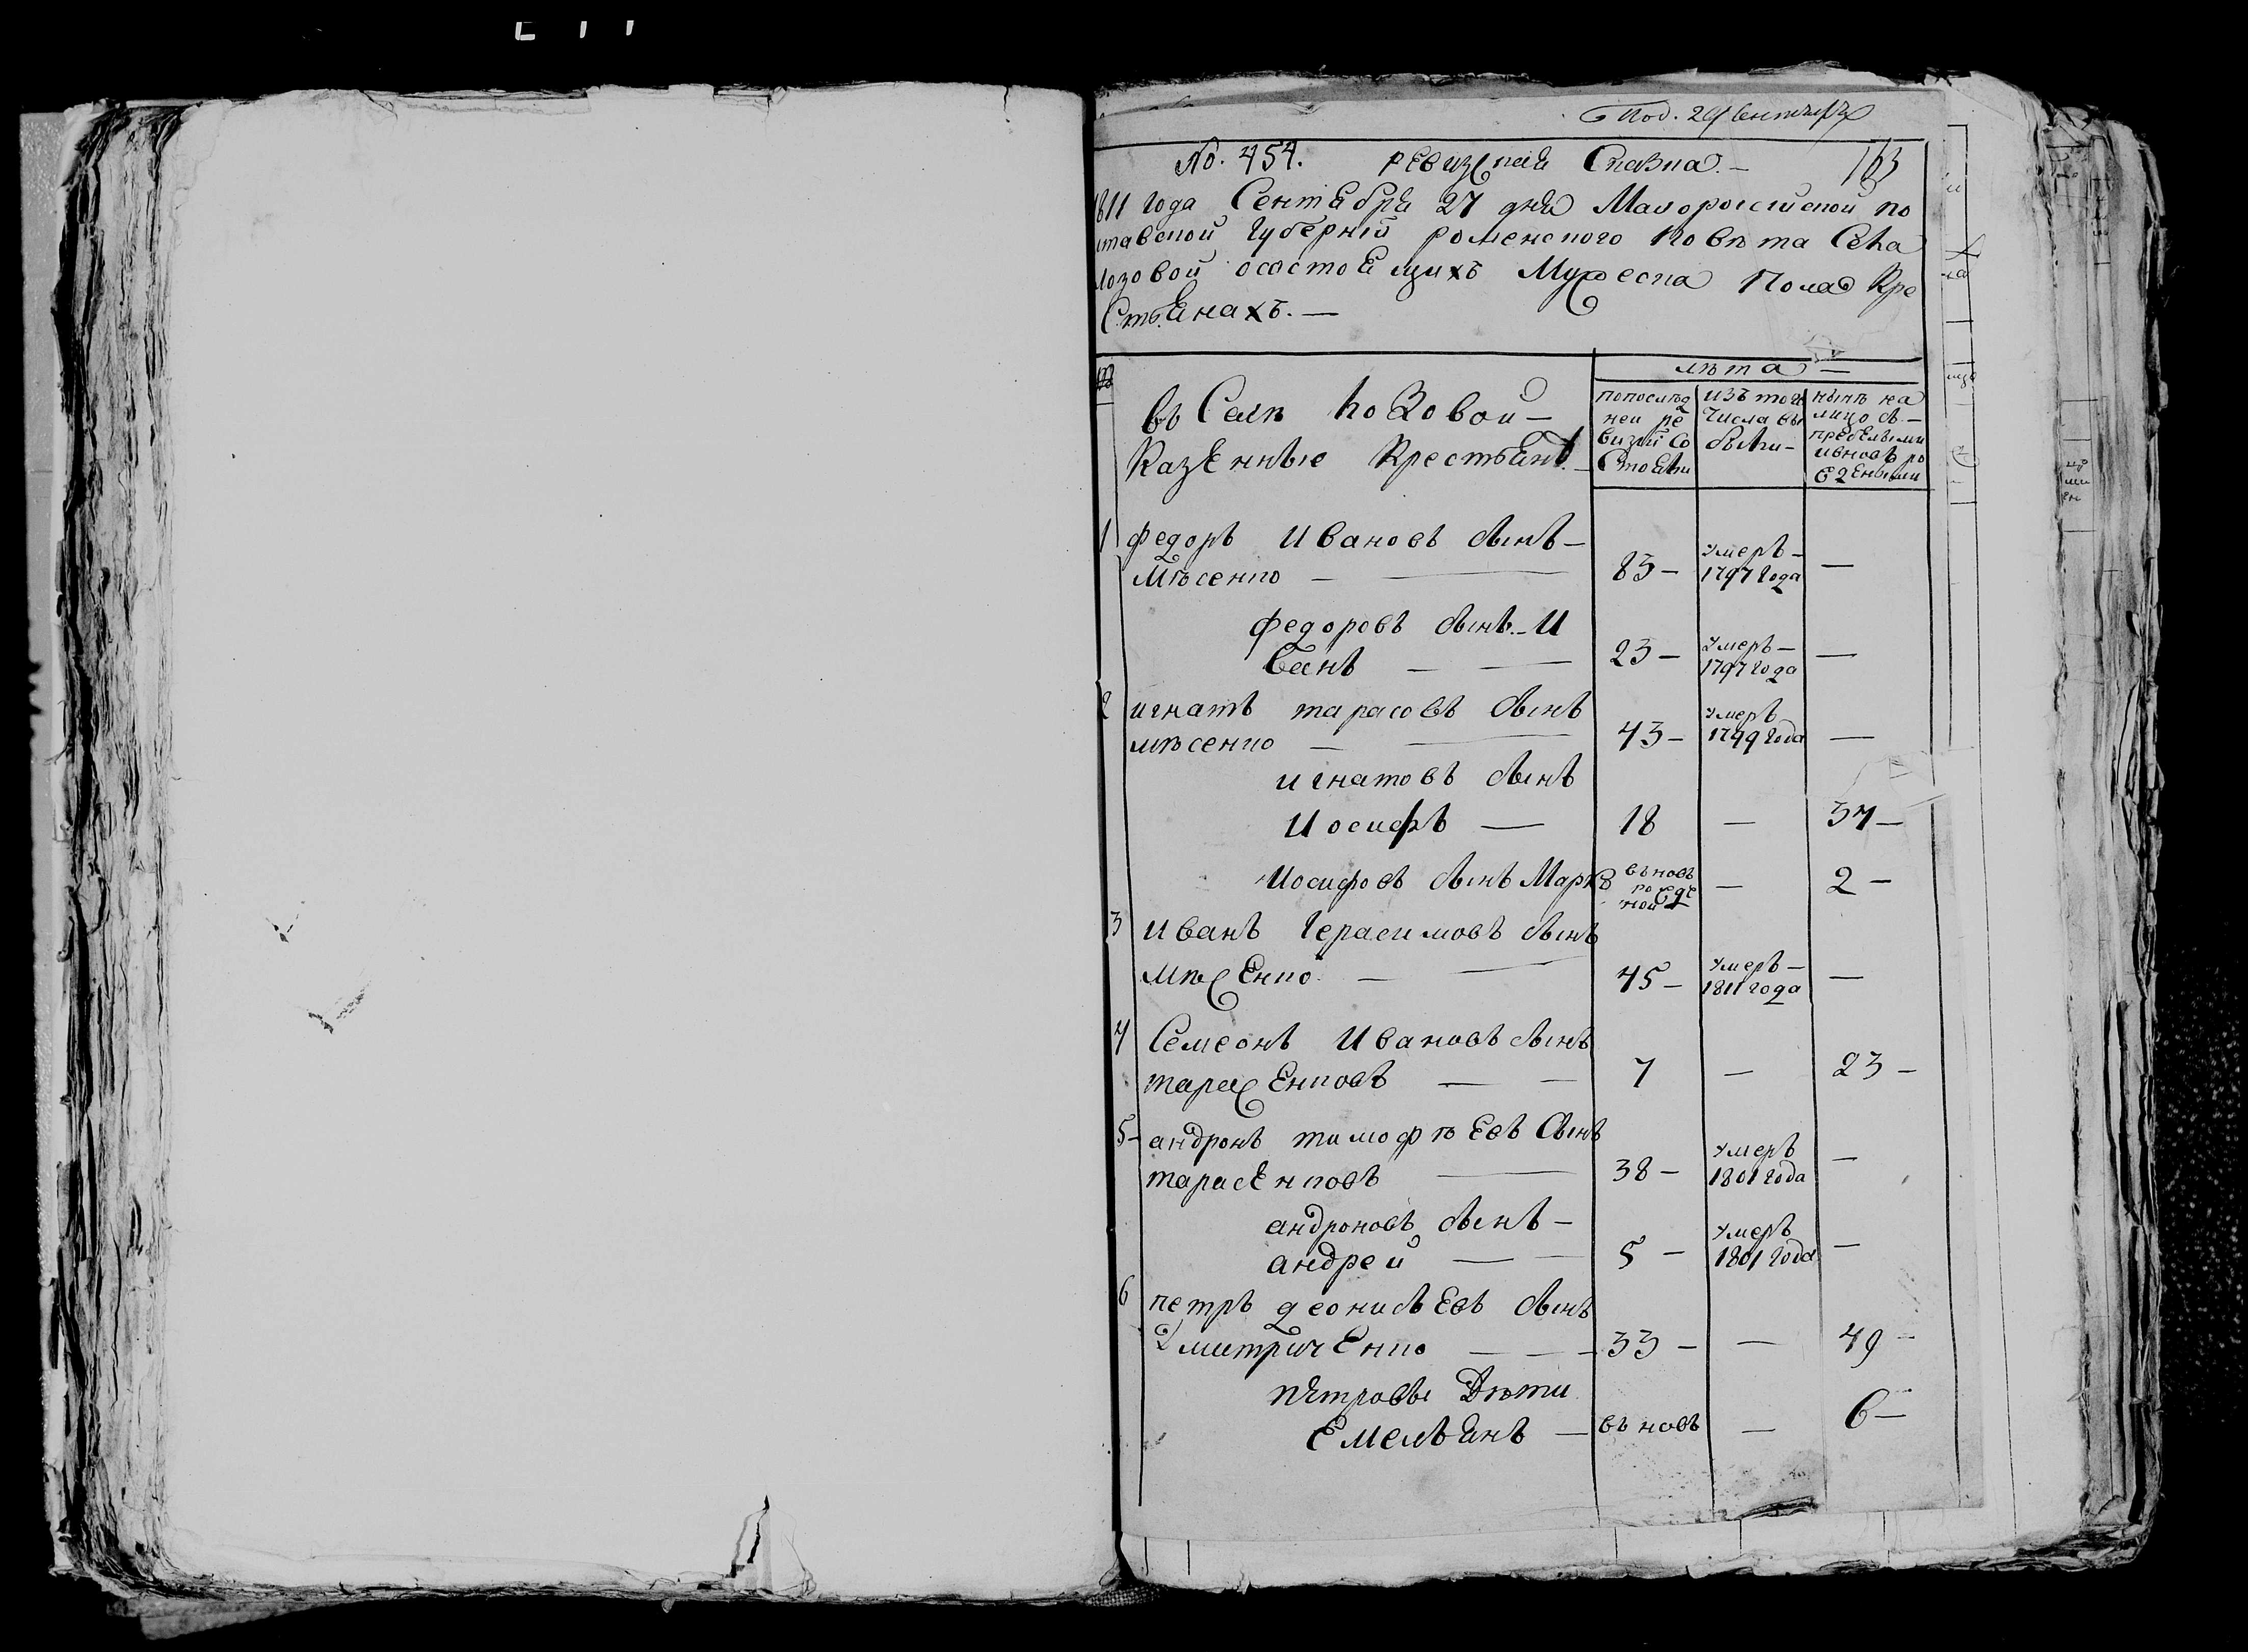 Под. 29 Сентября
№. 454. ревизская Сказка. — 163
1811 года Сентября 27 дня Малоросийской по
лтавской губернїй роменского повѣта Села
лозовой осостоящихъ Мужеска пола Кре
Стьянахъ. —
лѣта —
въ Селѣ лозовой —
Казенные Крестьянѣ. —
попослѣд
ней ре
визїй со
Стояли
изъ того
числа вы
были —
нынѣ на
лицо съ —
прибылыми
ивновь ро
ждеными
1 федоръ Ивановъ сынъ —
Мѣсенко — 83 — умеръ — 1797 года —
федоровъ сынъ — И
ванъ — 23 — умеръ — 1797 года —
2 игнатъ тарасовъ сынъ
мѣсенко — 43 — умеръ 1799 года —
игнатовъ сынъ
Иосифъ — 18 — 34 —
Иосифовъ сынъ Маркъ въновь рожденой — 2 —
3 иванъ герасимовъ сынъ
мѣсенко — 45 — умеръ — 1811 года —
4 Семеонъ Ивановъ сынъ
тарасенковъ — 7 — 23 —
5 — андронъ тимофѣевъ Сынъ
тарасенковъ — 38 — умеръ 1801 года —
андроновъ сынъ —
андрей — 5 — умеръ 1801 года —
6 петръ деонисьевъ сынъ
Дмитриченко — 33 — — 49 —
петровы Дѣти
Емельянъ — въновь — 6 —